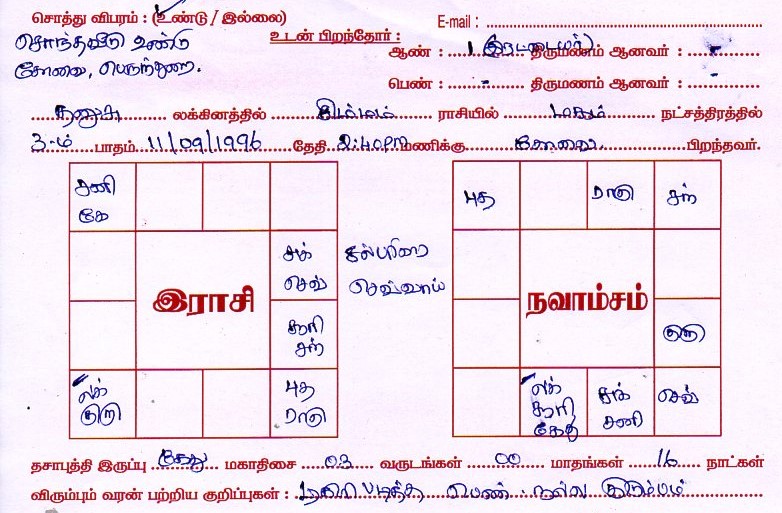 சொத்து விபரம் : (உண்டு / இல்லை)
E-mail :
சொந்தவீடு உண்டு
உடன் பிறந்தோர் :
ஆண் : 1 திருமணம் ஆனவர் : -
கோவை, பெருந்துறை.
பெண் : - திருமணம் ஆனவர் :
தனுசு லக்கினத்தில் சிம்மம் ராசியில் மகம் நட்சத்திரத்தில்
3-ம் பாதம் 11/09/1996 தேதி 2:40PM மணிக்கு கோவை பிறந்தவர்.
சனி
கே
சுக்
செவ்
சுப்பிறை
செவ்வாய்
இராசி
சூரி
சந்
லக்
குரு
புத
ராகு
புத
ராகு
சந்
நவாம்சம்
குரு
லக்
சூரி
கேது
சுக்
சனி
செவ்
தசாபுத்தி இருப்பு கேது மகாதிசை 03 வருடங்கள் 00 மாதங்கள் 16 நாட்கள்
விரும்பும் வரன் பற்றிய குறிப்புகள் : படித்த பெண். நல்ல குடும்பம்